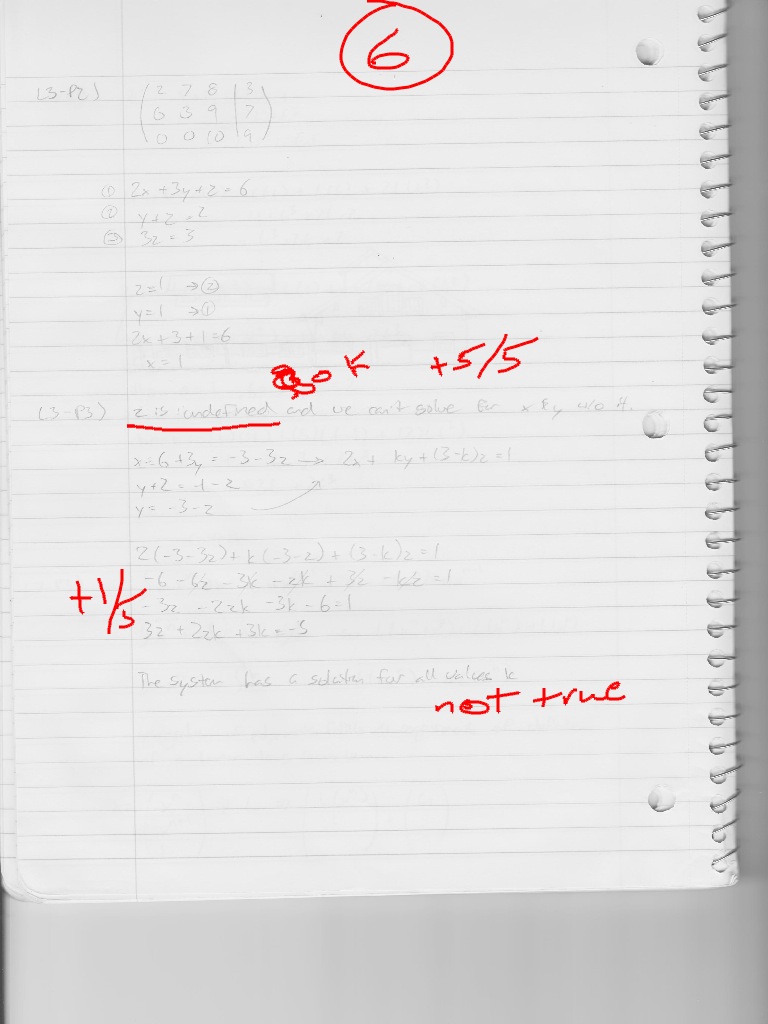 6
L3-P2) 2 7 8 | 3
6 3 9 | 7
0 0 10 | 9
① 2x + 3y + z = 6
② y + z = 2
③ 3z = 3
z = 1 → ②
y = 1 → ①
2x + 3 + 1 = 6
x = 1
ok +5/5
L3-P3) z is undefined and we can't solve for x & y w/o it.
x = 6 + 3y = -3 - 3z → 2x + ky + (3-k)z = 1
y + 2 = -1 - z
y = -3 - z
2(-3-3z) + k(-3-z) + (3-k)z = 1
-6 - 6z - 3k - zk + 3z - kz = 1
+1/5
-3z - 2zk - 3k - 6 = 1
3z + 2zk + 3k = -5
The system has a solution for all values k
not true